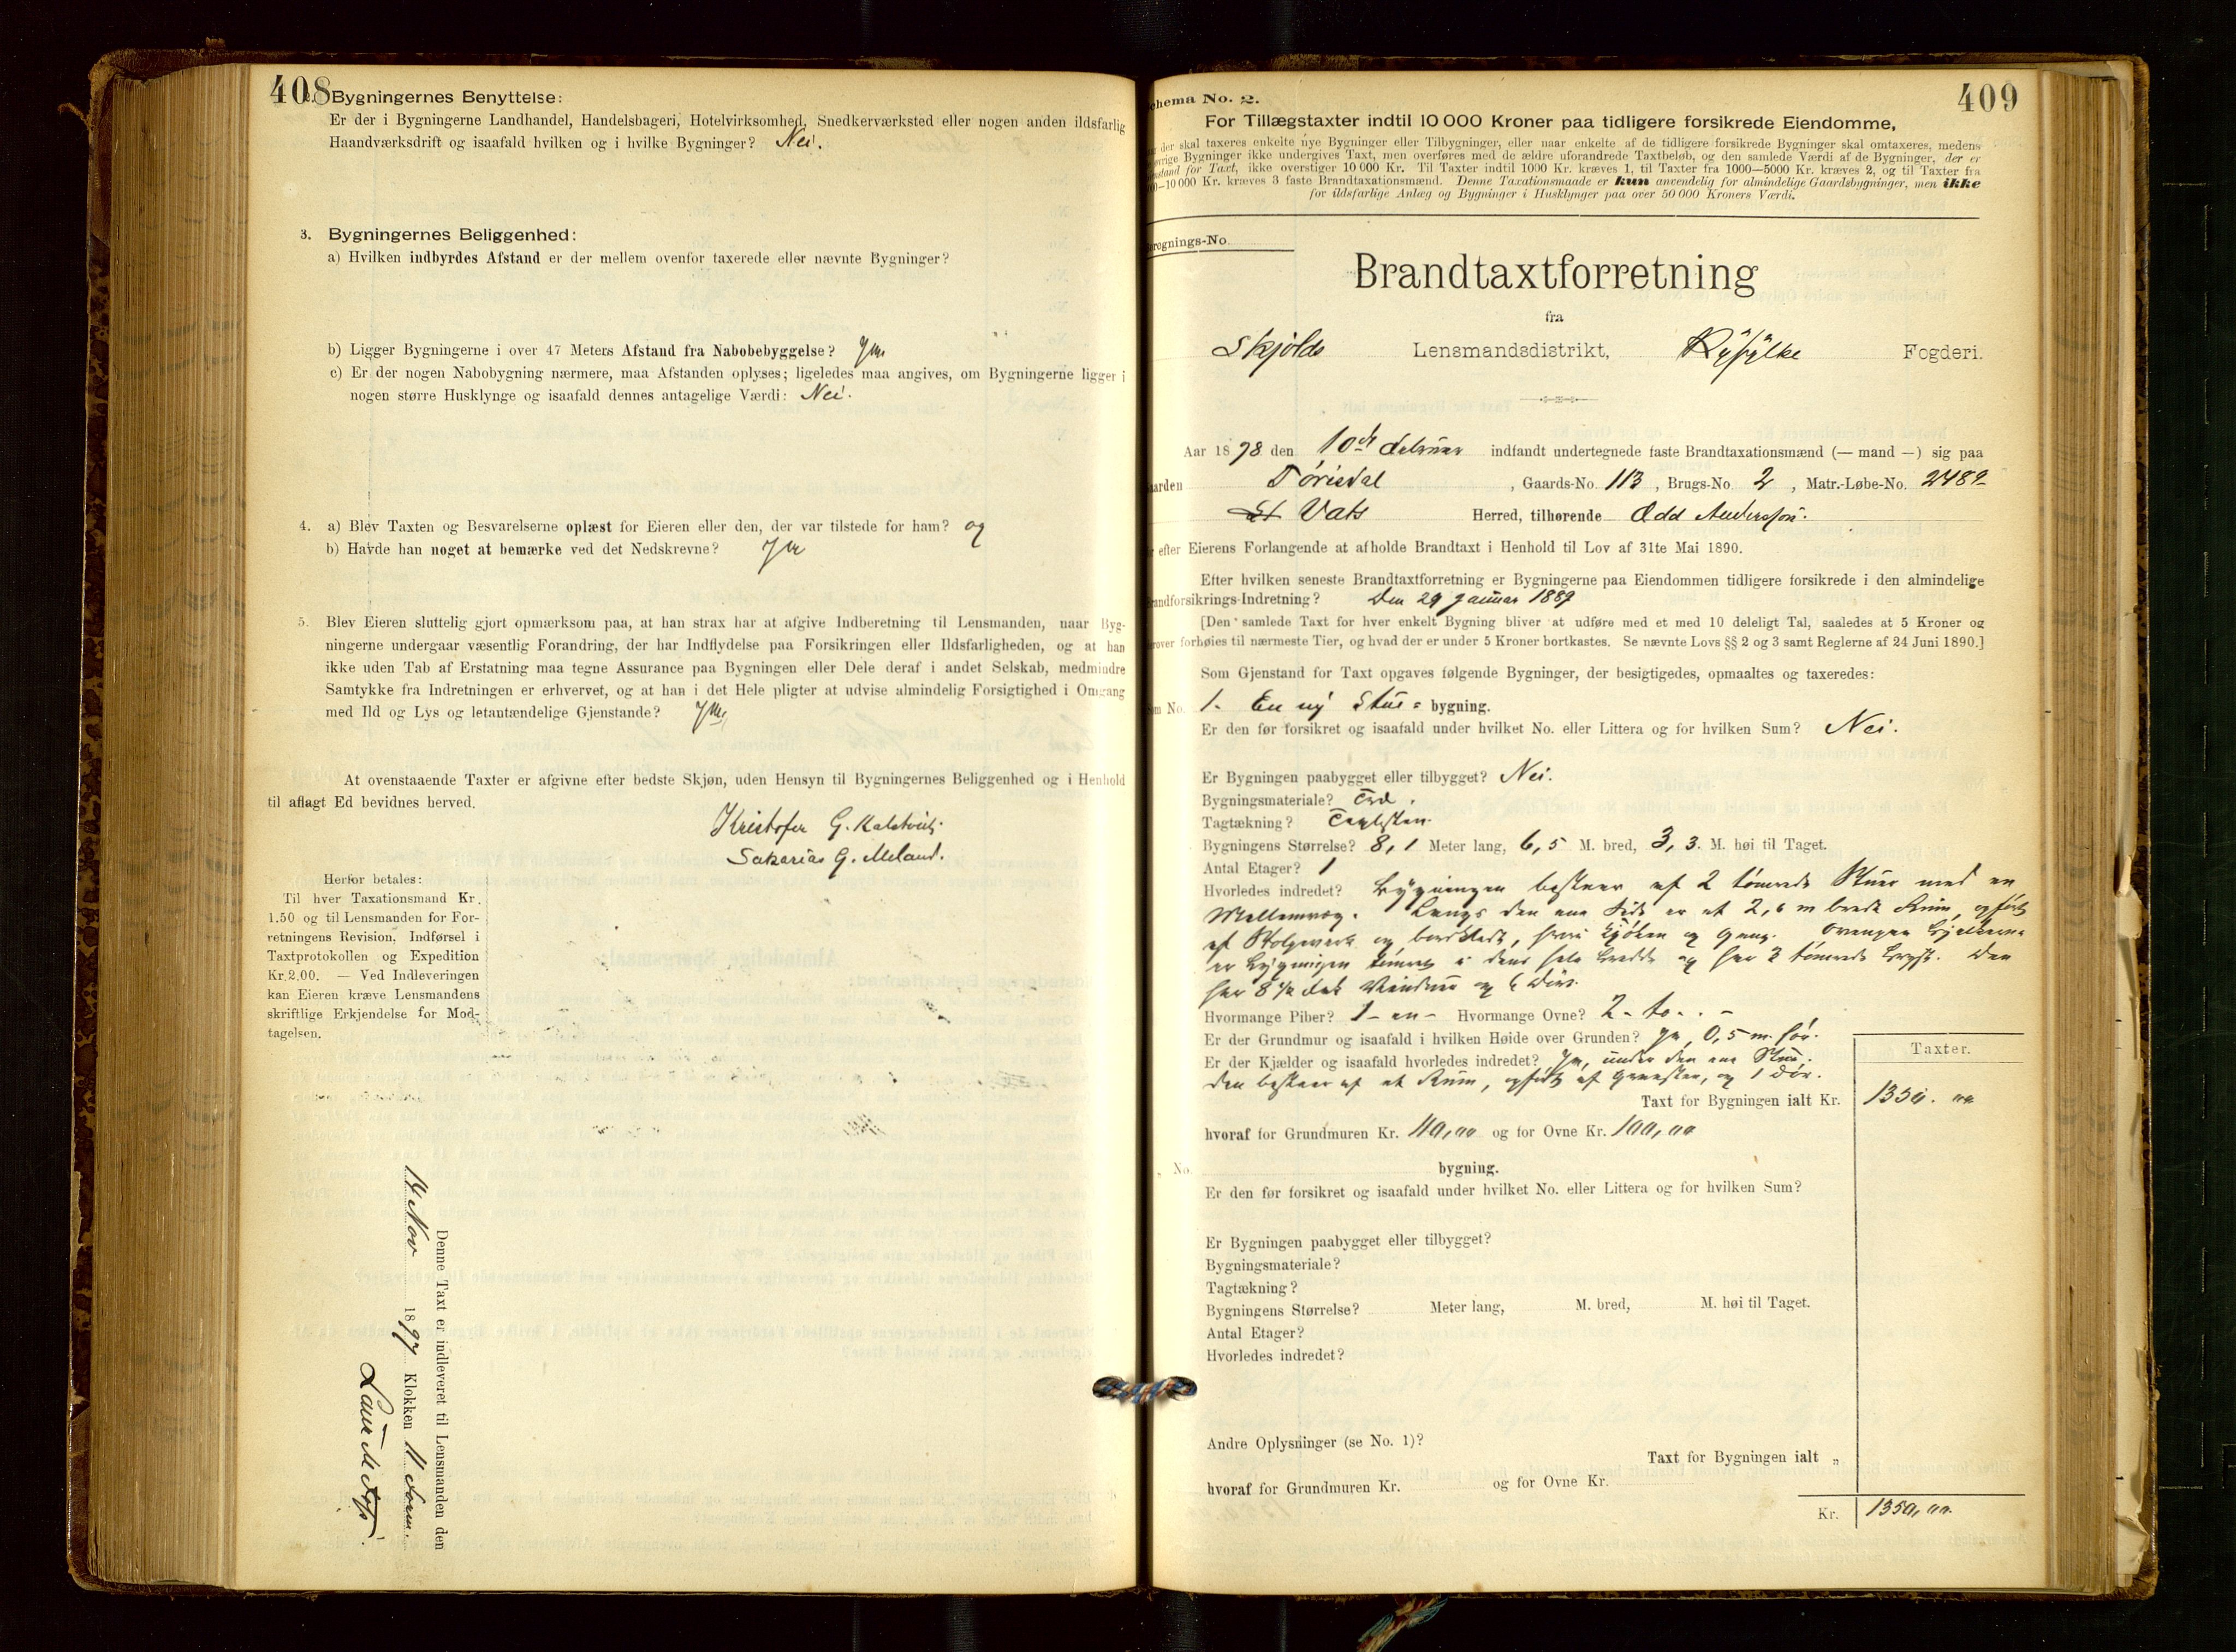 408
2. Bygningernes Benyttelse:
Er der i Bygningerne Landhandel, Handelsbageri, Hotelvirksomhed, Snedkerværksted eller nogen anden ildsfarlig
Haandværksdrift og isaafald hvilken og i hvilke Bygninger? Nei.
3. Bygningernes Beliggenhed:
a) Hvilken indbyrdes Afstand er der mellem ovenfor taxerede eller nævnte Bygninger?
b) Ligger Bygningerne i over 47 Meters Afstand fra Nabobebyggelse? Ja
c) Er der nogen Nabobygning nærmere, maa Afstanden oplyses; ligeledes maa angives, om Bygningerne ligger i
nogen større Husklynge og isaafald dennes antagelige Værdi: Nei.
4. a) Blev Taxten og Besvarelserne oplæst for Eieren eller den, der var tilstede for ham? og
b) Havde han noget at bemærke ved det Nedskrevne? Ja
5. Blev Eieren sluttelig gjort opmærksom paa, at han strax har at afgive Indberetning til Lensmanden, naar Byg-
ningerne undergaar væsentlig Forandring, der har Indflydelse paa Forsikringen eller Ildsfarligheden, og at han
ikke uden Tab af Erstatning maa tegne Assurance paa Bygningen eller Dele deraf i andet Selskab, medmindre
Samtykke fra Indretningen er erhvervet, og at han i det Hele pligter at udvise almindelig Forsigtighed i Omgang
med Ild og Lys og letantændelige Gjenstande? Ja
At ovenstaaende Taxter er afgivne efter bedste Skjøn, uden Hensyn til Bygningernes Beliggenhed og i Henhold
til aflagt Ed bevidnes herved.
Kristofer G.
Sakarias G. Meland.
Herfor betales:
Til hver Taxationsmand Kr.
1.50 og til Lensmanden for For-
retningens Revision, Indførsel i
Taxtprotokollen og Expedition
Kr. 2.00. — Ved Indleveringen
kan Eieren kræve Lensmandens
skriftlige Erkjendelse for Mod-
tagelsen.
Denne Taxt er indleveret til Lensmanden den
14 Nov 1897 Klokken 11 Form.
409
Schema No. 2.
For Tillægstaxter indtil 10 000 Kroner paa tidligere forsikrede Eiendomme,
der skal taxeres enkelte nye Bygninger eller Tilbygninger, eller naar enkelte af de tidligere forsikrede Bygninger skal omtaxeres, medens
øvrige Bygninger ikke undergives Taxt, men overføres med de ældre uforandrede Taxtbeløb, og den samlede Værdi af de Bygninger, der er
Gjenstand for Taxt, ikke overstiger 10 000 Kr. Til Taxter indtil 1000 Kr. kræves 1, til Taxter fra 1000—5000 Kr. kræves 2, og til Taxter fra
—10 000 Kr. kræves 3 faste Brandtaxationsmænd. Denne Taxationsmaade er kun anvendelig for almindelige Gaardsbygninger, men ikke
for ildsfarlige Anlæg og Bygninger i Husklynger paa over 50 000 Kroners Værdi.
Brandtaxtforretning
fra
Skjolds Lensmandsdistrikt, Ryfylke Fogderi.
Aar 1898 den 10de Februar indfandt undertegnede faste Brandtaxationsmænd (— mand —) sig paa
Gaarden Törisdal, Gaards-No. 113, Brugs-No. 2, Matr.-Løbe-No. 2482
Vats Herred, tilhørende Odd Anderssøn.
efter Eierens Forlangende at afholde Brandtaxt i Henhold til Lov af 31te Mai 1890.
Efter hvilken seneste Brandtaxtforretning er Bygningerne paa Eiendommen tidligere forsikrede i den almindelige
Brandforsikrings-Indretning? Den 29 Januar 1889
[Den samlede Taxt for hver enkelt Bygning bliver at udføre med et med 10 deleligt Tal, saaledes at 5 Kroner og
derover forhøies til nærmeste Tier, og hvad der er under 5 Kroner bortkastes. Se nævnte Lovs §§ 2 og 3 samt Reglerne af 24 Juni 1890.]
Som Gjenstand for Taxt opgaves følgende Bygninger, der besigtigedes, opmaaltes og taxeredes:
Som No. 1. En ny Stue-bygning.
Er den før forsikret og isaafald under hvilket No. eller Littera og for hvilken Sum? Nei.
Er Bygningen paabygget eller tilbygget? Nei.
Bygningsmateriale? Træ.
Tagtækning? Taglsten.
Bygningens Størrelse? 8,1 Meter lang, 6,5 M. bred, 3,3 M. høi til Taget.
Antal Etager? 1
Hvorledes indredet? Bygningen bestaar af 2 tömrede Stuer med en
Mellemvæg. Langs den ene Side er et 2,6 m bredt Rum, opført
af Stolpeverk og bordklædt, hvori Kjøken og Gang. Ovenpaa Bjelkerne
er Bygningen tömret i dens hele bredde og har 2 tömrede Bryst. Den
har 8 1/2 dels Vinduer og 6 Döre.
Hvormange Piber? 1 - en - Hvormange Ovne? 2 - to . . -
Er der Grundmur og isaafald i hvilken Høide over Grunden? Ja, 0,5 m. høi.
Er der Kjælder og isaafald hvorledes indredet? Ja, under den ene Stue.
den bestaar af et Rum, opført af Graasten, og 1 Dör.
Taxter.
Taxt for Bygningen ialt Kr. 1350.00
hvoraf for Grundmuren Kr. 40,00 og for Ovne Kr. 100,00
No. bygning.
Er den før forsikret og isaafald under hvilket No. eller Littera og for hvilken Sum?
Er Bygningen paabygget eller tilbygget?
Bygningsmateriale?
Tagtækning?
Bygningens Størrelse? Meter lang, M. bred, M. høi til Taget.
Antal Etager?
Hvorledes indredet?
Andre Oplysninger (se No. 1)?
Taxt for Bygningen ialt „
hvoraf for Grundmuren Kr. og for Ovne Kr.
Kr. 1350,00.